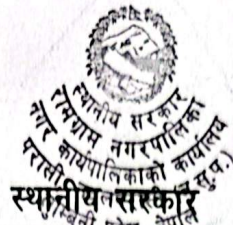 स्थानीय सरकार
रामग्राम नगरपालिका
नगर कार्यपालिकाको कार्यालय
परासी
सु.प.)
स्थानीय सरकार
नेपाल